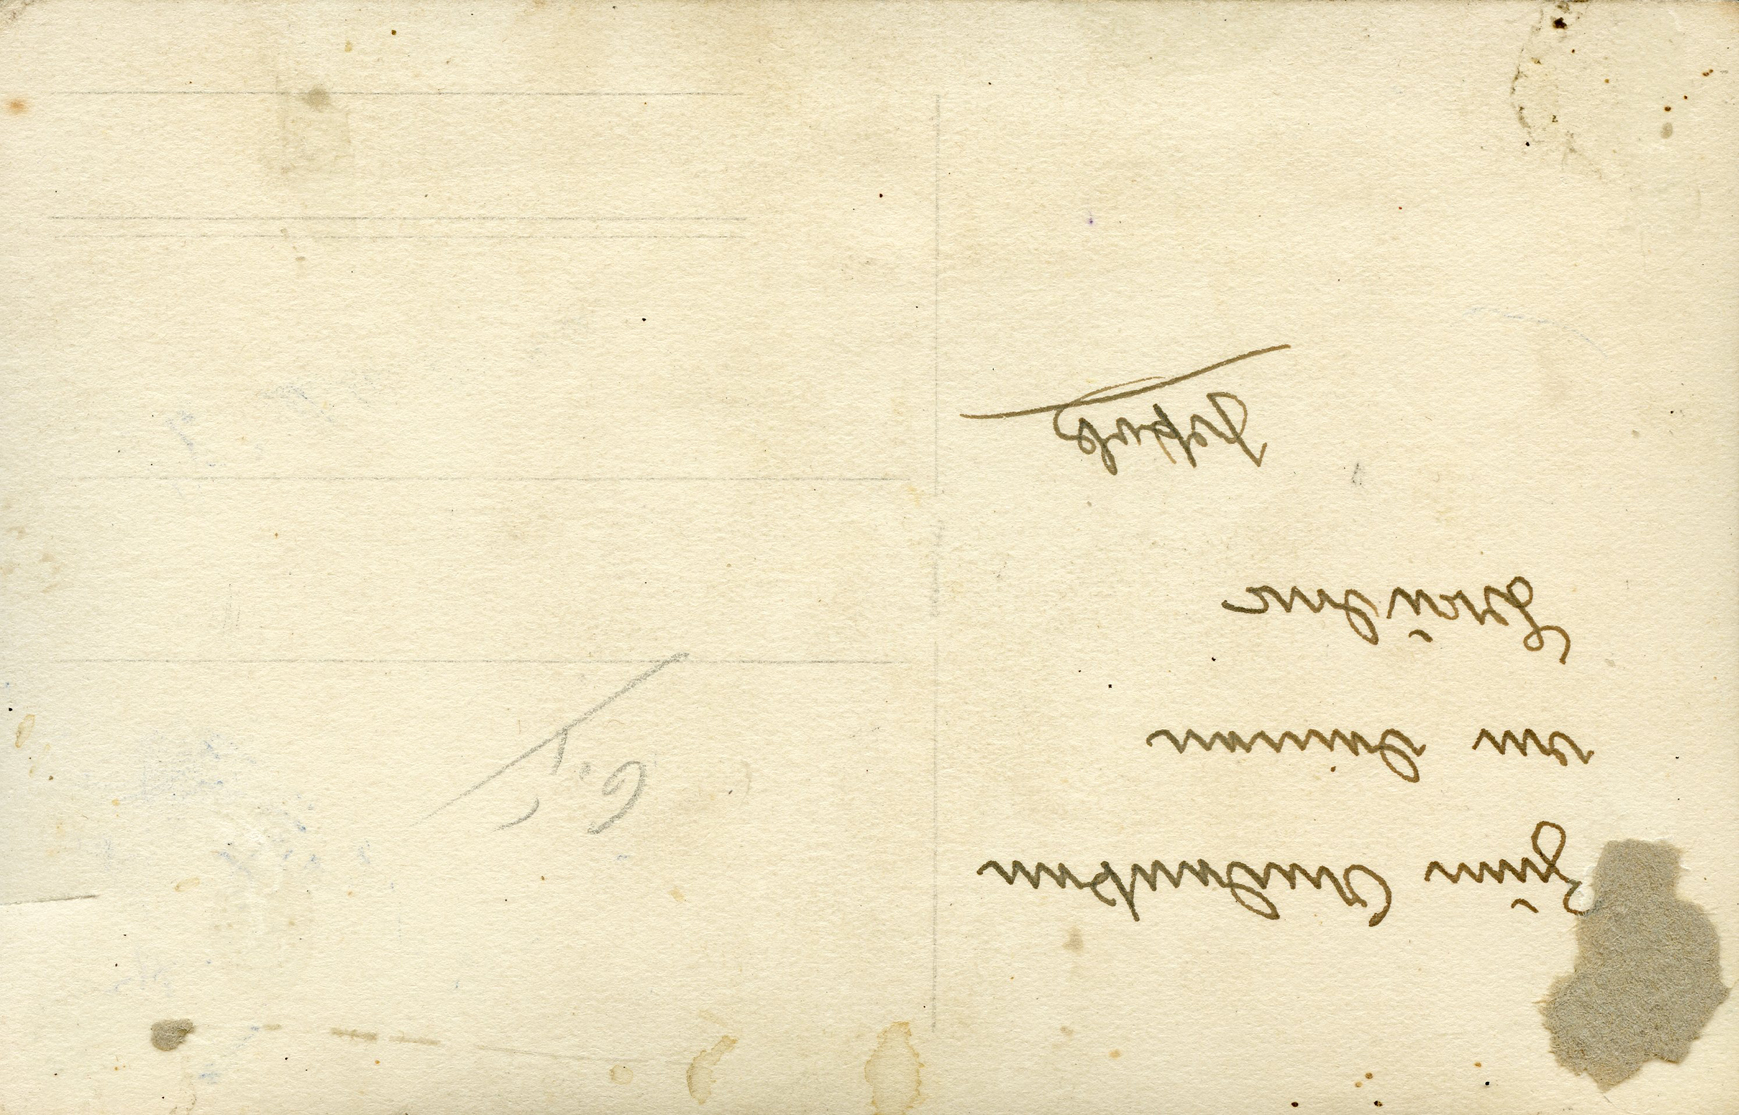 Zum Andenken
an deinen
Bruder
Jakob